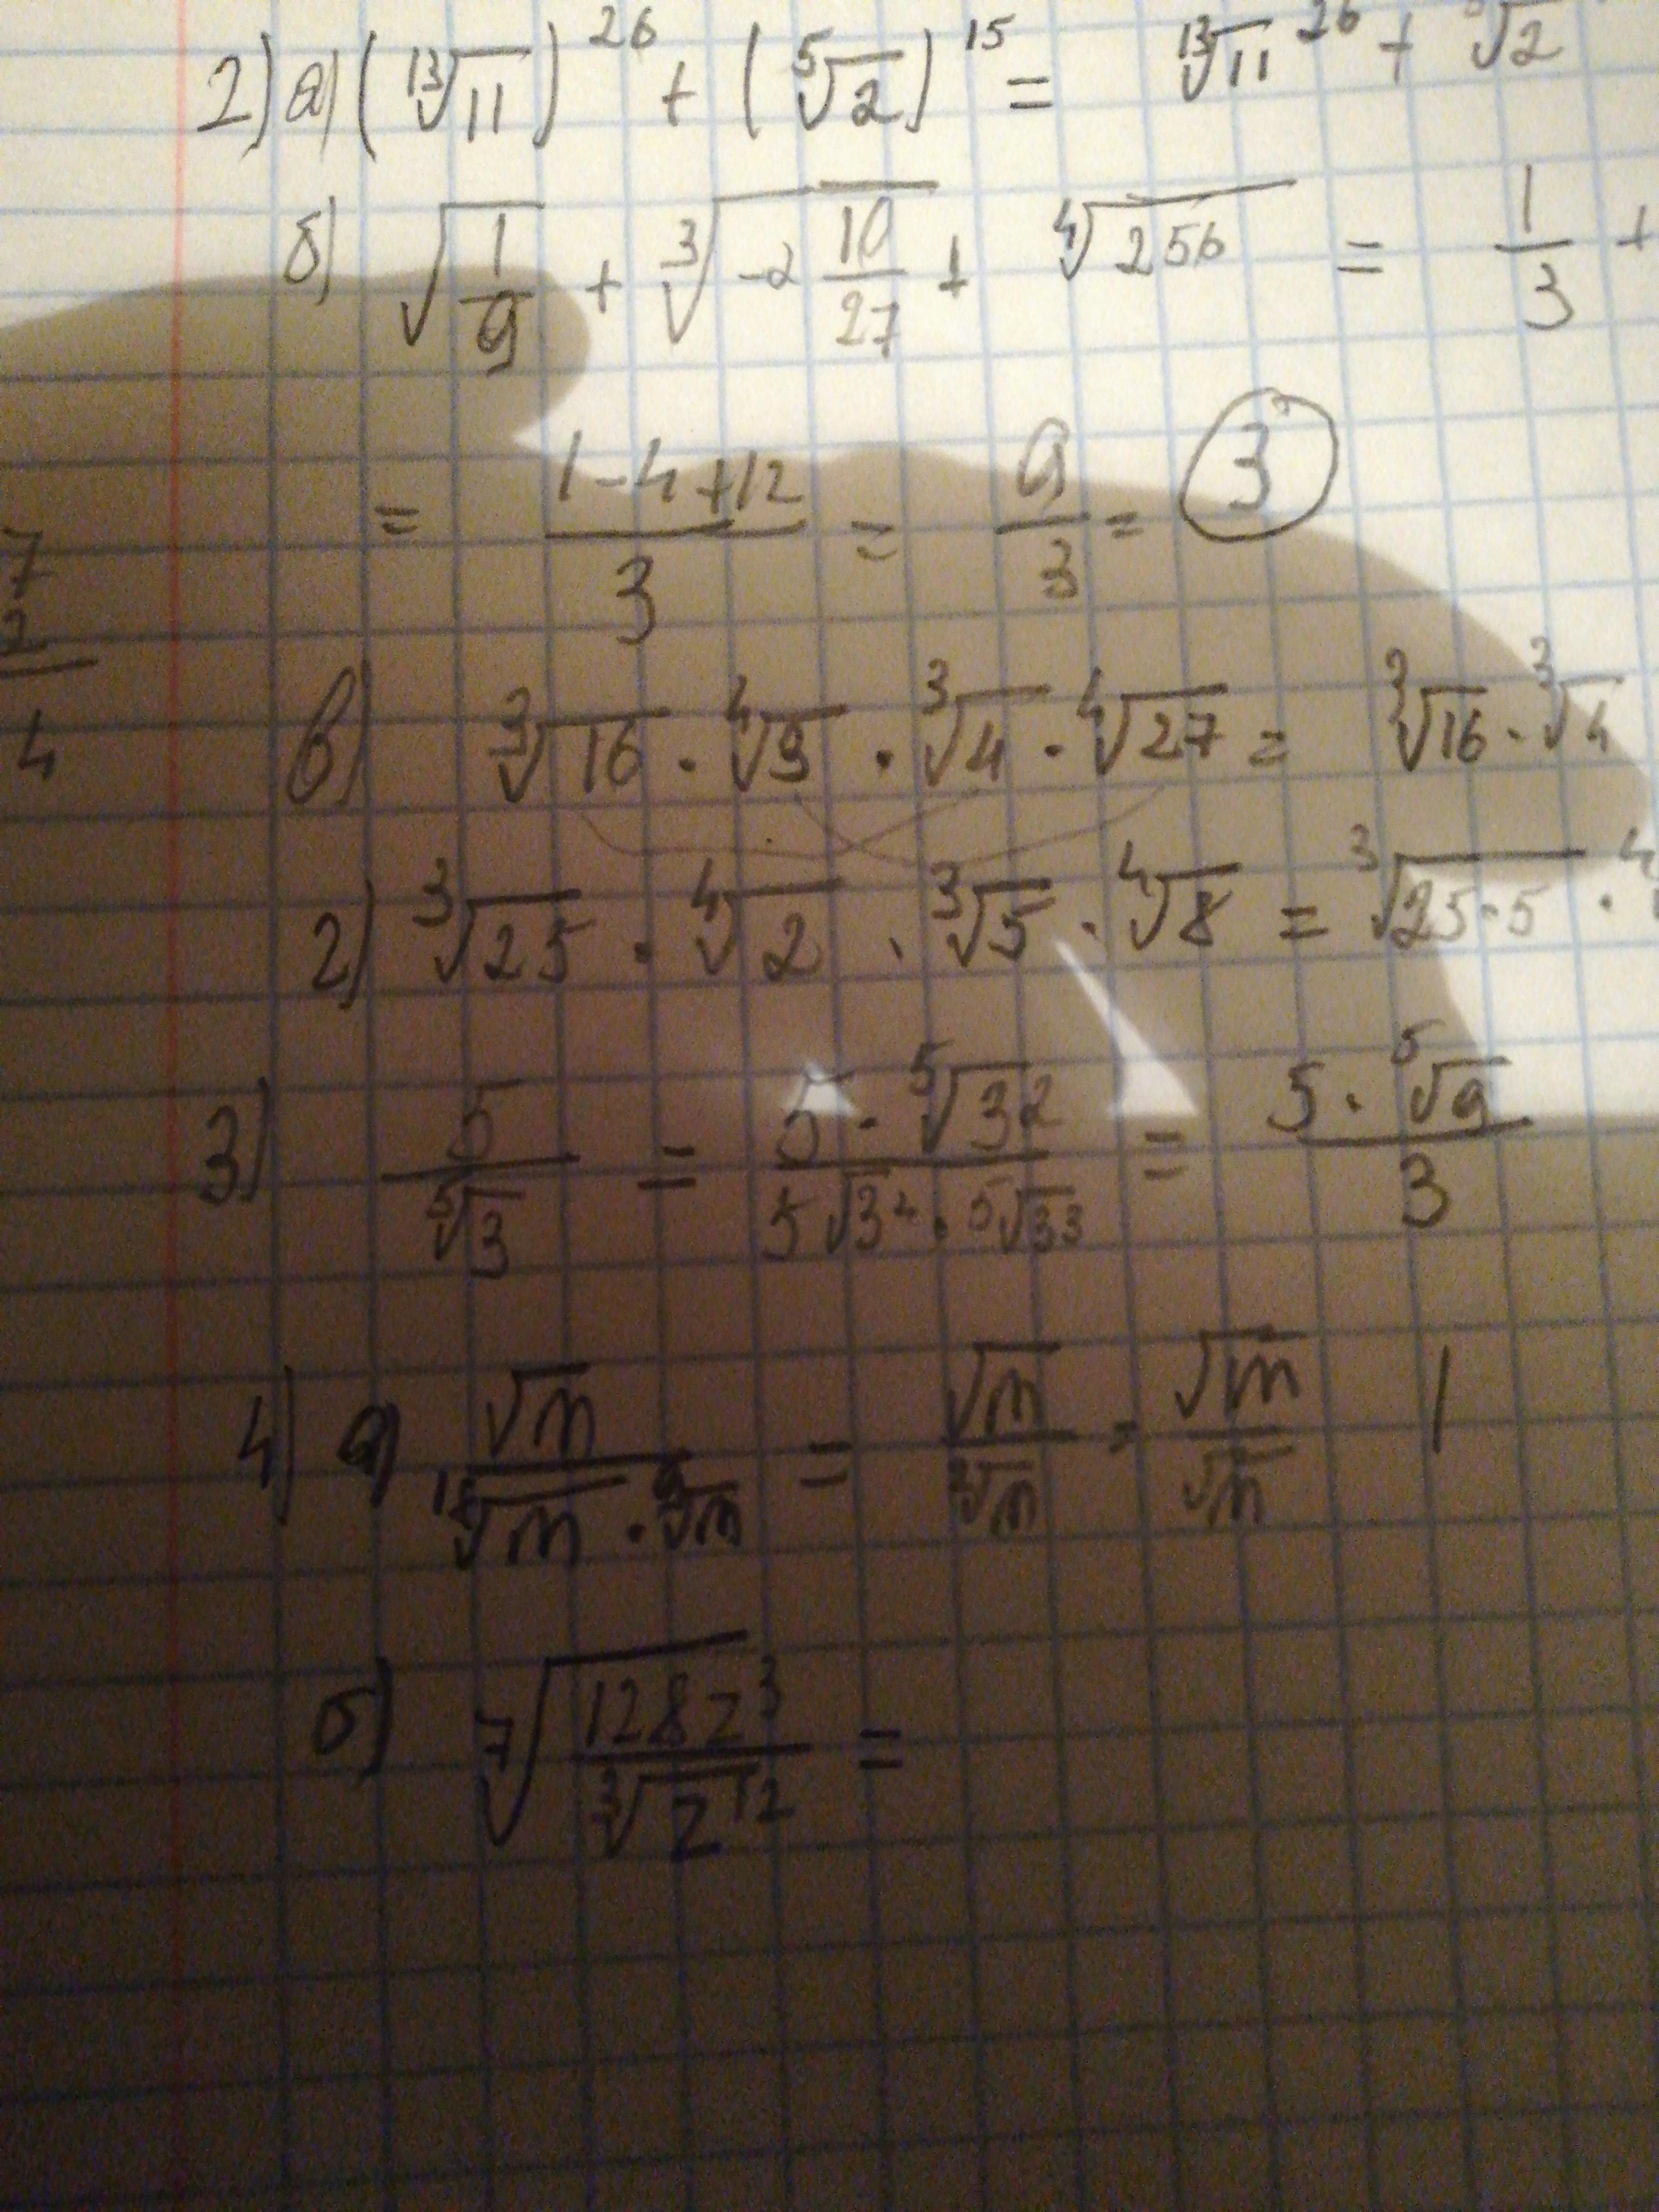 2) а) (¹³√11)²⁶ + (⁵√2)¹⁵ = ¹³√11²⁶ + √2
б) √(1/9) + ³√(-2 10/27) + ⁴√256 = 1/3 +
= (1-4+12)/3 = 9/3 = 3
7
2
4
в) ³√16 · ⁴√3 · ³√4 · ⁴√27 = ³√16 · ³√4
г) ³√25 · ⁴√2 · ³√5 · ⁴√8 = ³√(25·5) · ⁴
3) 5/⁵√3 = (5 · ⁵√3²)/(⁵√3⁴ · ⁵√3³) = (5 · ⁵√9)/3
4) а) √m/(¹⁵√m · ⁹√m) = √m/³√m = √m/√m 1
б) ⁷√(128z³/³√z¹²) =